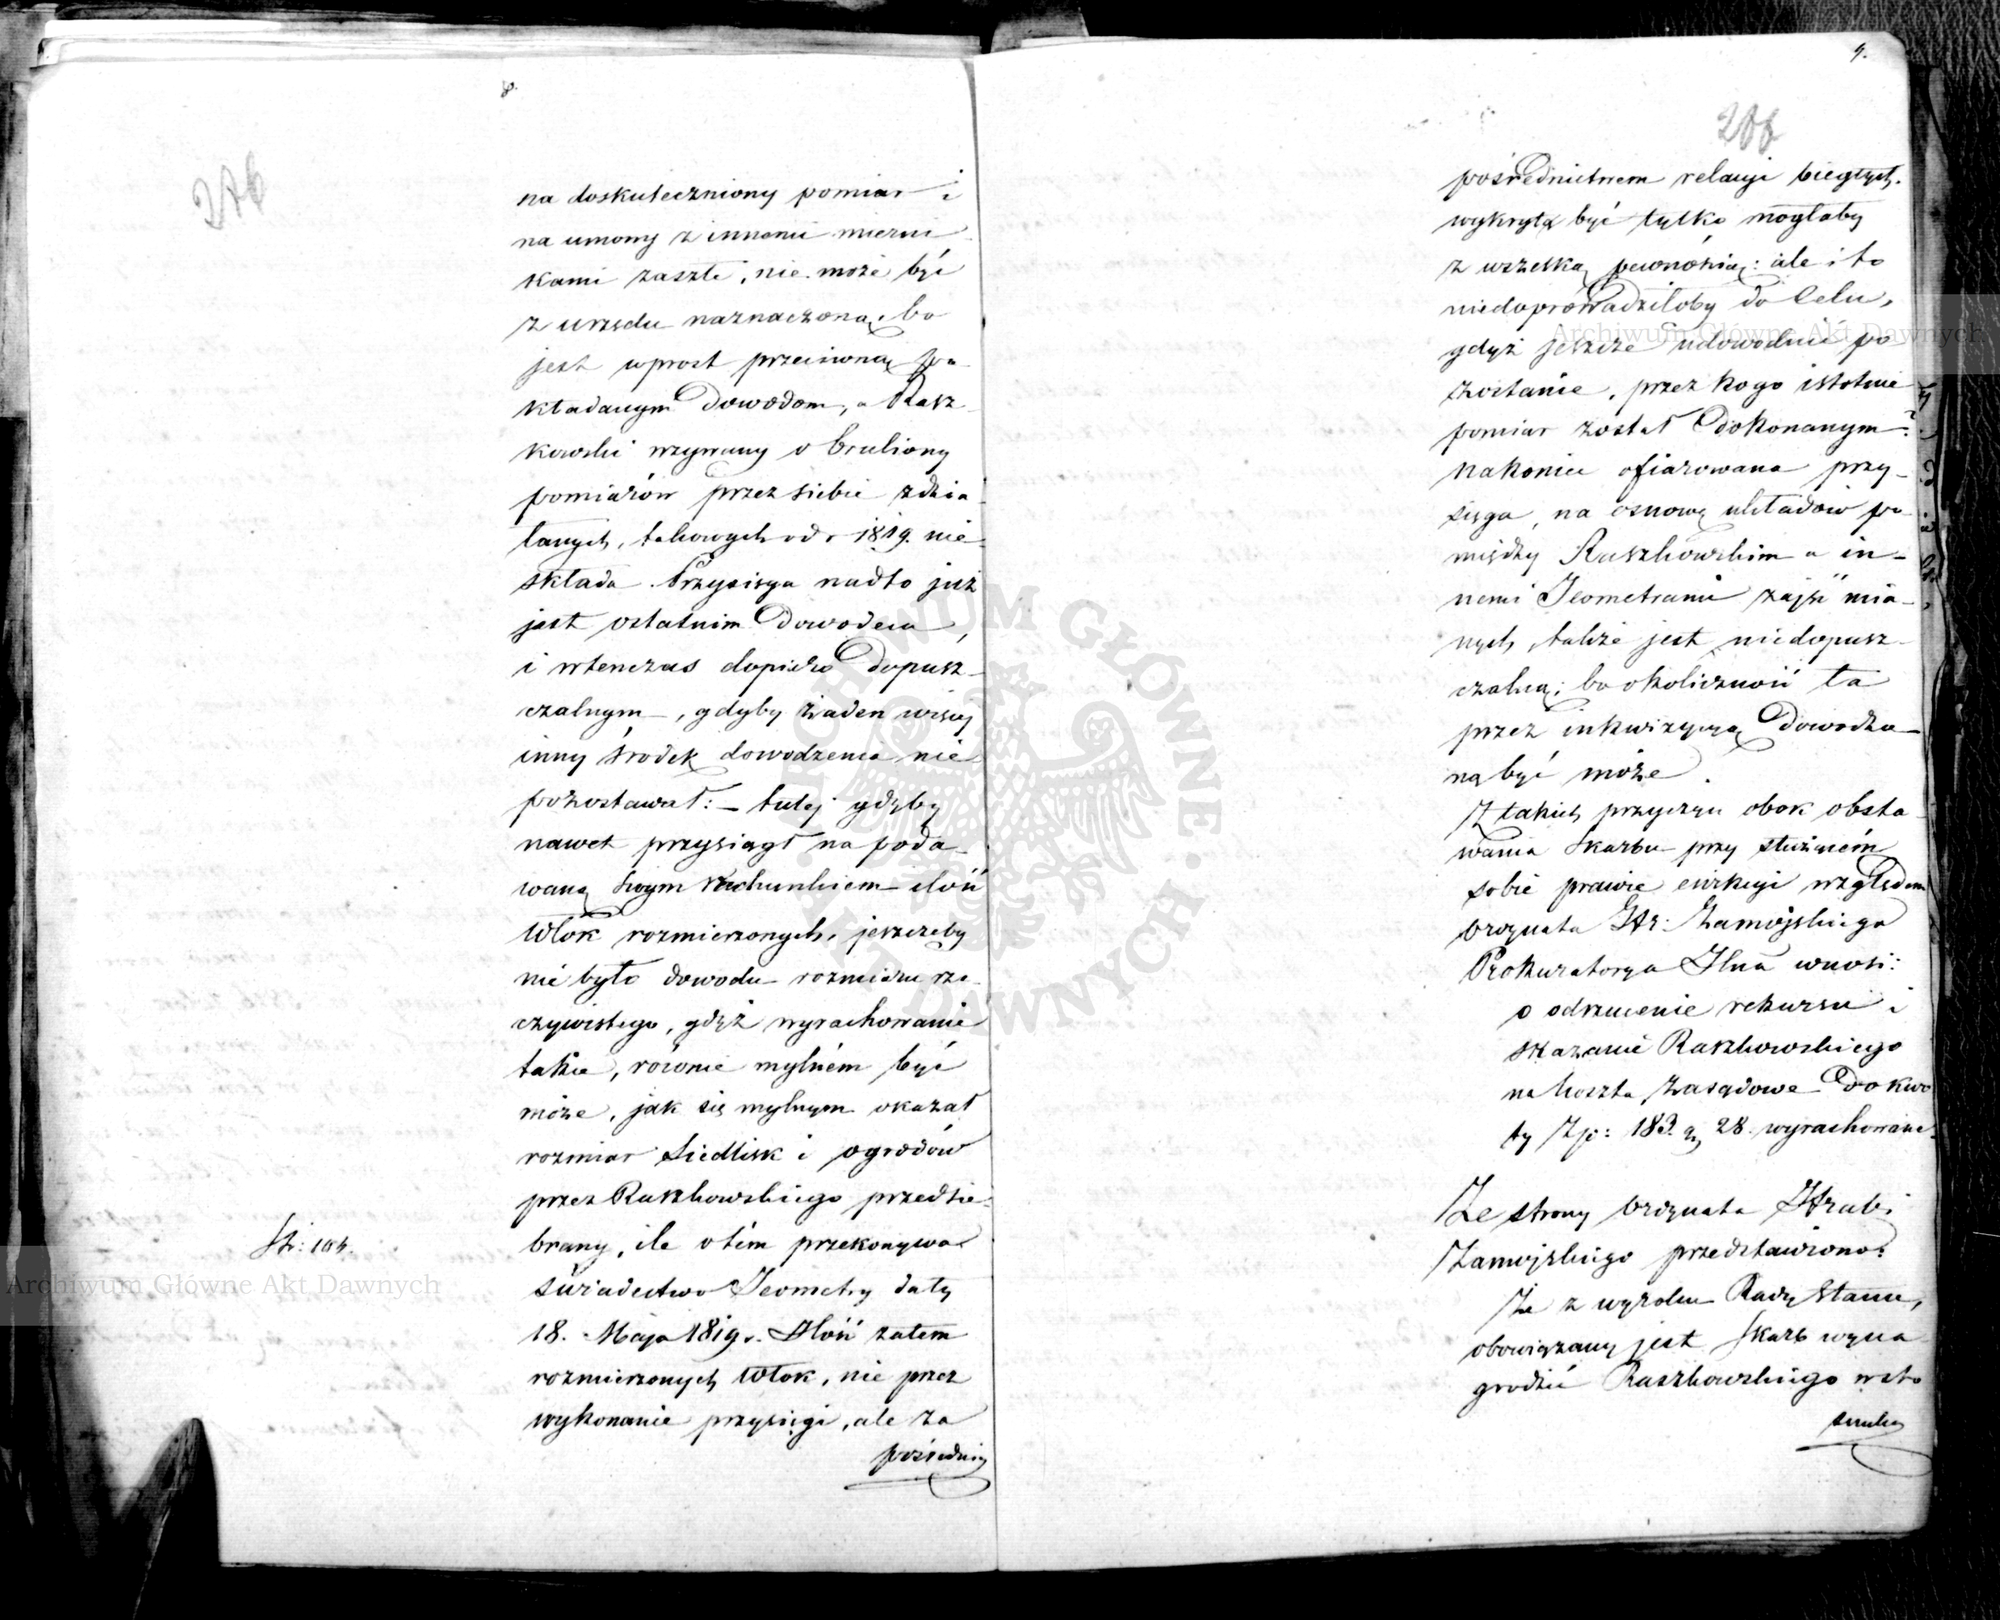 8.
276
na doskuteczniony pomiar i
na umowy z innemi mierni
kami zaszłe, nie może być
z urzędu naznaczoną, bo
jest wprost przeciwną po
kładanym Dowodom, a Rasz
kowski wzywany o bruliony
pomiarów przez siebie zdzia
łanych, takowych od r 1819. nie
składa. Przysięga nadto już
jest ostatnim Dowodem,
i wtenczas dopiero Dopusz
czalnym, gdyby żaden więcej
inny środek dowodzenia nie
pozostawał: – tutaj gdyby
nawet przysiągł na poda
waną swym rachunkiem ilość
Włók rozmierzonych, jeszczeby
nie było dowodu rozmiaru rze
czywistego, gdyż wyrachowanie
takie, równie mylném być
może, jak się mylnym okazał
rozmiar Siedlisk i ogrodów
przez Raszkowskiego przedsię
brany, ile o tém przekonywa
Str: 104.
świadectwo Jeometry daty
18. Maja 1819 r. Ilość zatem
rozmierzonych Włok, nie przez
wykonanie przysięgi, ale za
pośrednic
9.
pośrednictwem relacyi biegłych.
wykrytą być tylko mogłaby
z wszelką pewnością: ale i to
niedoprowadziłoby do Celu,
gdyż jeszcze udowodnić po
zostanie, przez kogo istotnie
pomiar został Dokonanym?
nakoniec ofiarowana przy-
sięga, na osnowę układów po
między Raszkowskim a in-
nemi Jeometrami zajść mia-
nych, także jest niedopusz-
czalną; bo okoliczność ta
przez inkwizycyą Dowodzo-
ną być może.
Z takich przyczyn obok obsta
wania Skarbu przy służącém
sobie prawie ewikcyi względem
brzynata Hr: Zamojskiego
Prokuratorya Jlna wnosi:
o odrzucenie rekursu i
skazanie Raszkowskiego
na koszta zasądowe Do kwo
ty Zp: 183. gr 28. wyrachowane.
Ze strony Hrabi
Zamojskiego przedstawiono:
Że z wyroku Rady Stanu,
obowiązany jest Skarb wyna
grodzić Raszkowskiego w sto
sunku
Archiwum Główne Akt Dawnych
Archiwum Główne Akt Dawnych
ARCHIWUM GŁÓWNE · AKT DAWNYCH ·